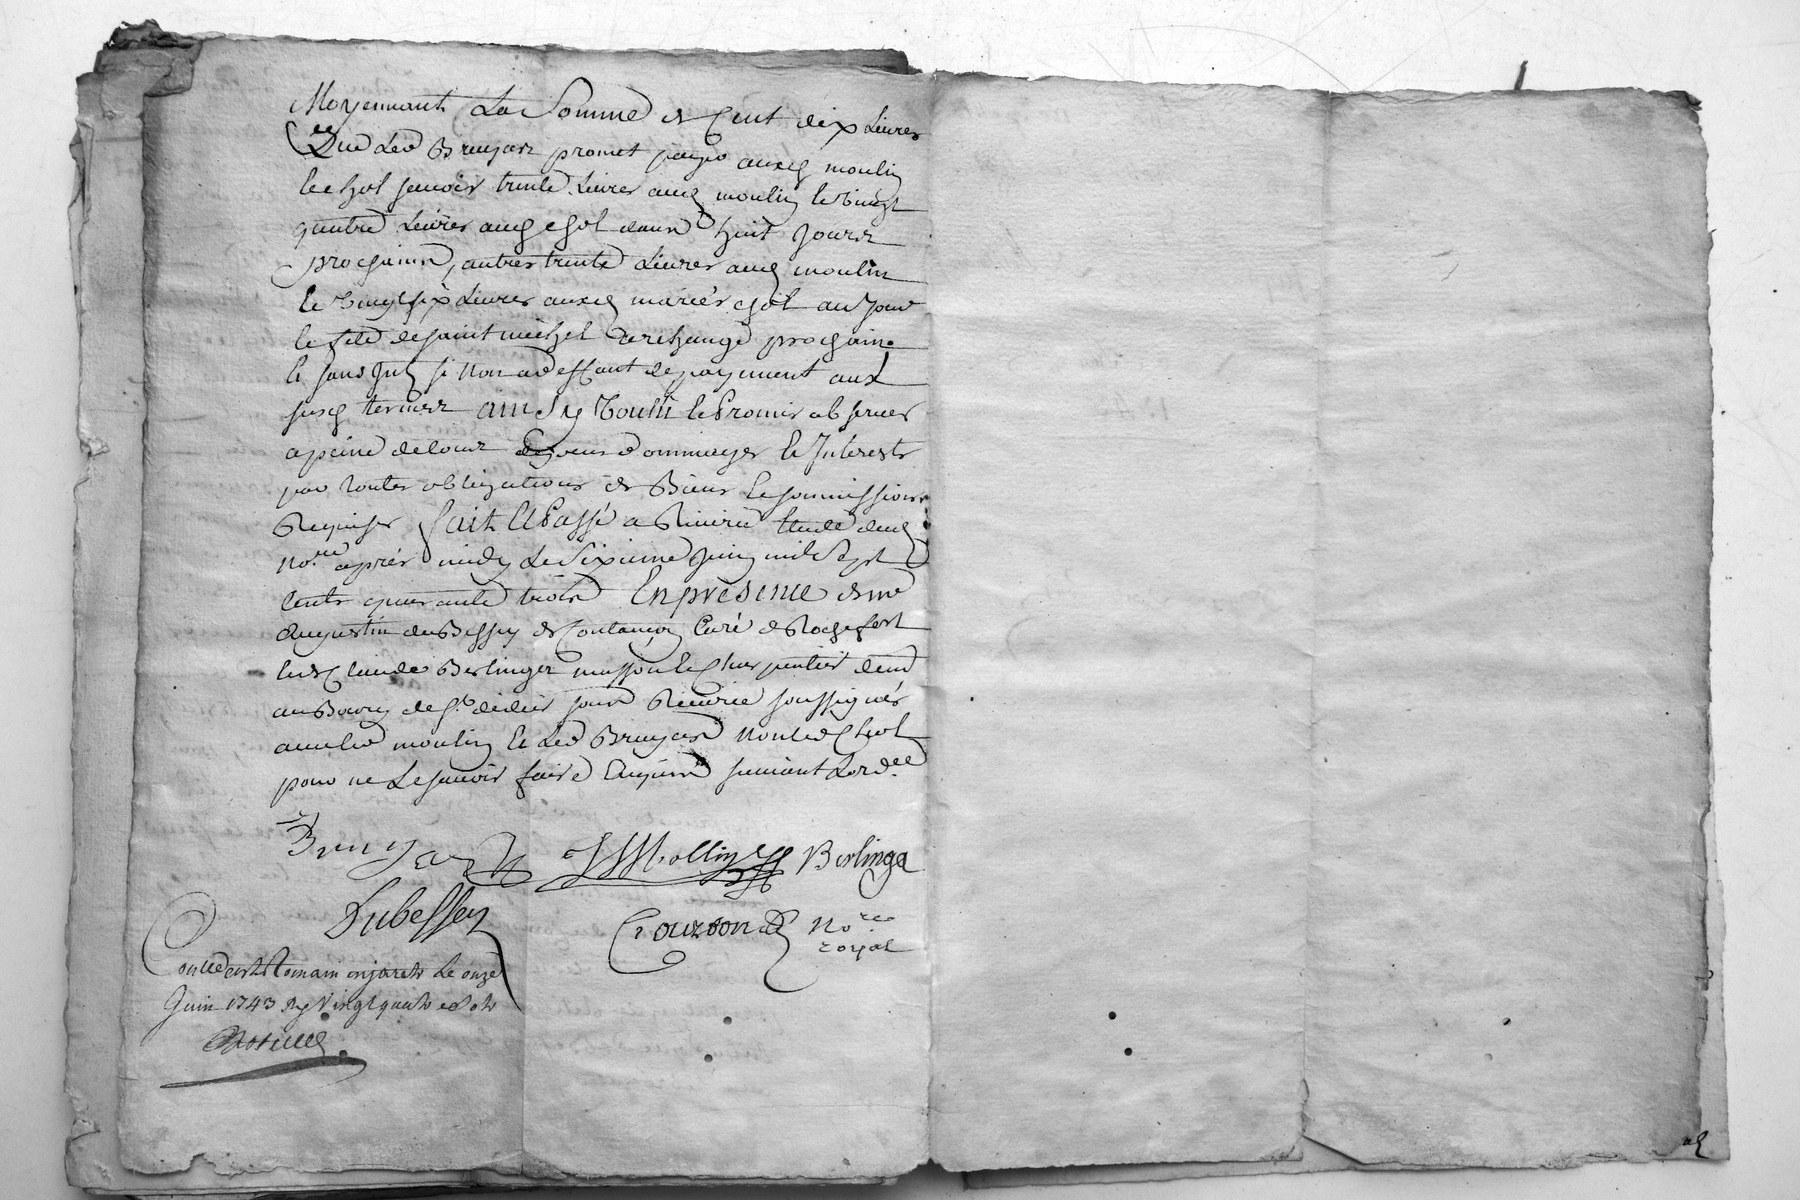 Moyennant La Somme de Cent dix Livres
Que Led Bruyas promet payer auxd moulin
et chol scavoir trente Livres aud moulin et vingt
quatre Livres aud chol dans huit jours
prochains, autres trente Livres aud moulin
et vingt six Livres auxd mariés chol au jour
et fete de saint michel archange prochain
et sans Int si non a deffaut de payement aux
susd termes ainsy voulu et Promis observer
a peine de tous depens dommages et Interests
par toutes obligations de Biens et soumissions
Requises fait et Passé a Riverie Etude dud
No.re après midy Le Sixieme Juin mil Sept
cents quarante trois En presence de me
Augustin duBessey de Contanson Curé de Rochefort
et de Claude Berlinger masson et Charpentier dem
au Bourg de St didier sous Riverie soussignés
avec led moulin et Led Bruyas Non led Chol
pour ne Le scavoir faire Enquis suivant Lordce
Bruyas Mollin Berlinge
Dubessey Couzon No.re
royal
Conllé a St Romain en jarets Le onze
Juin 1743 Reçu Vingt quatre sols